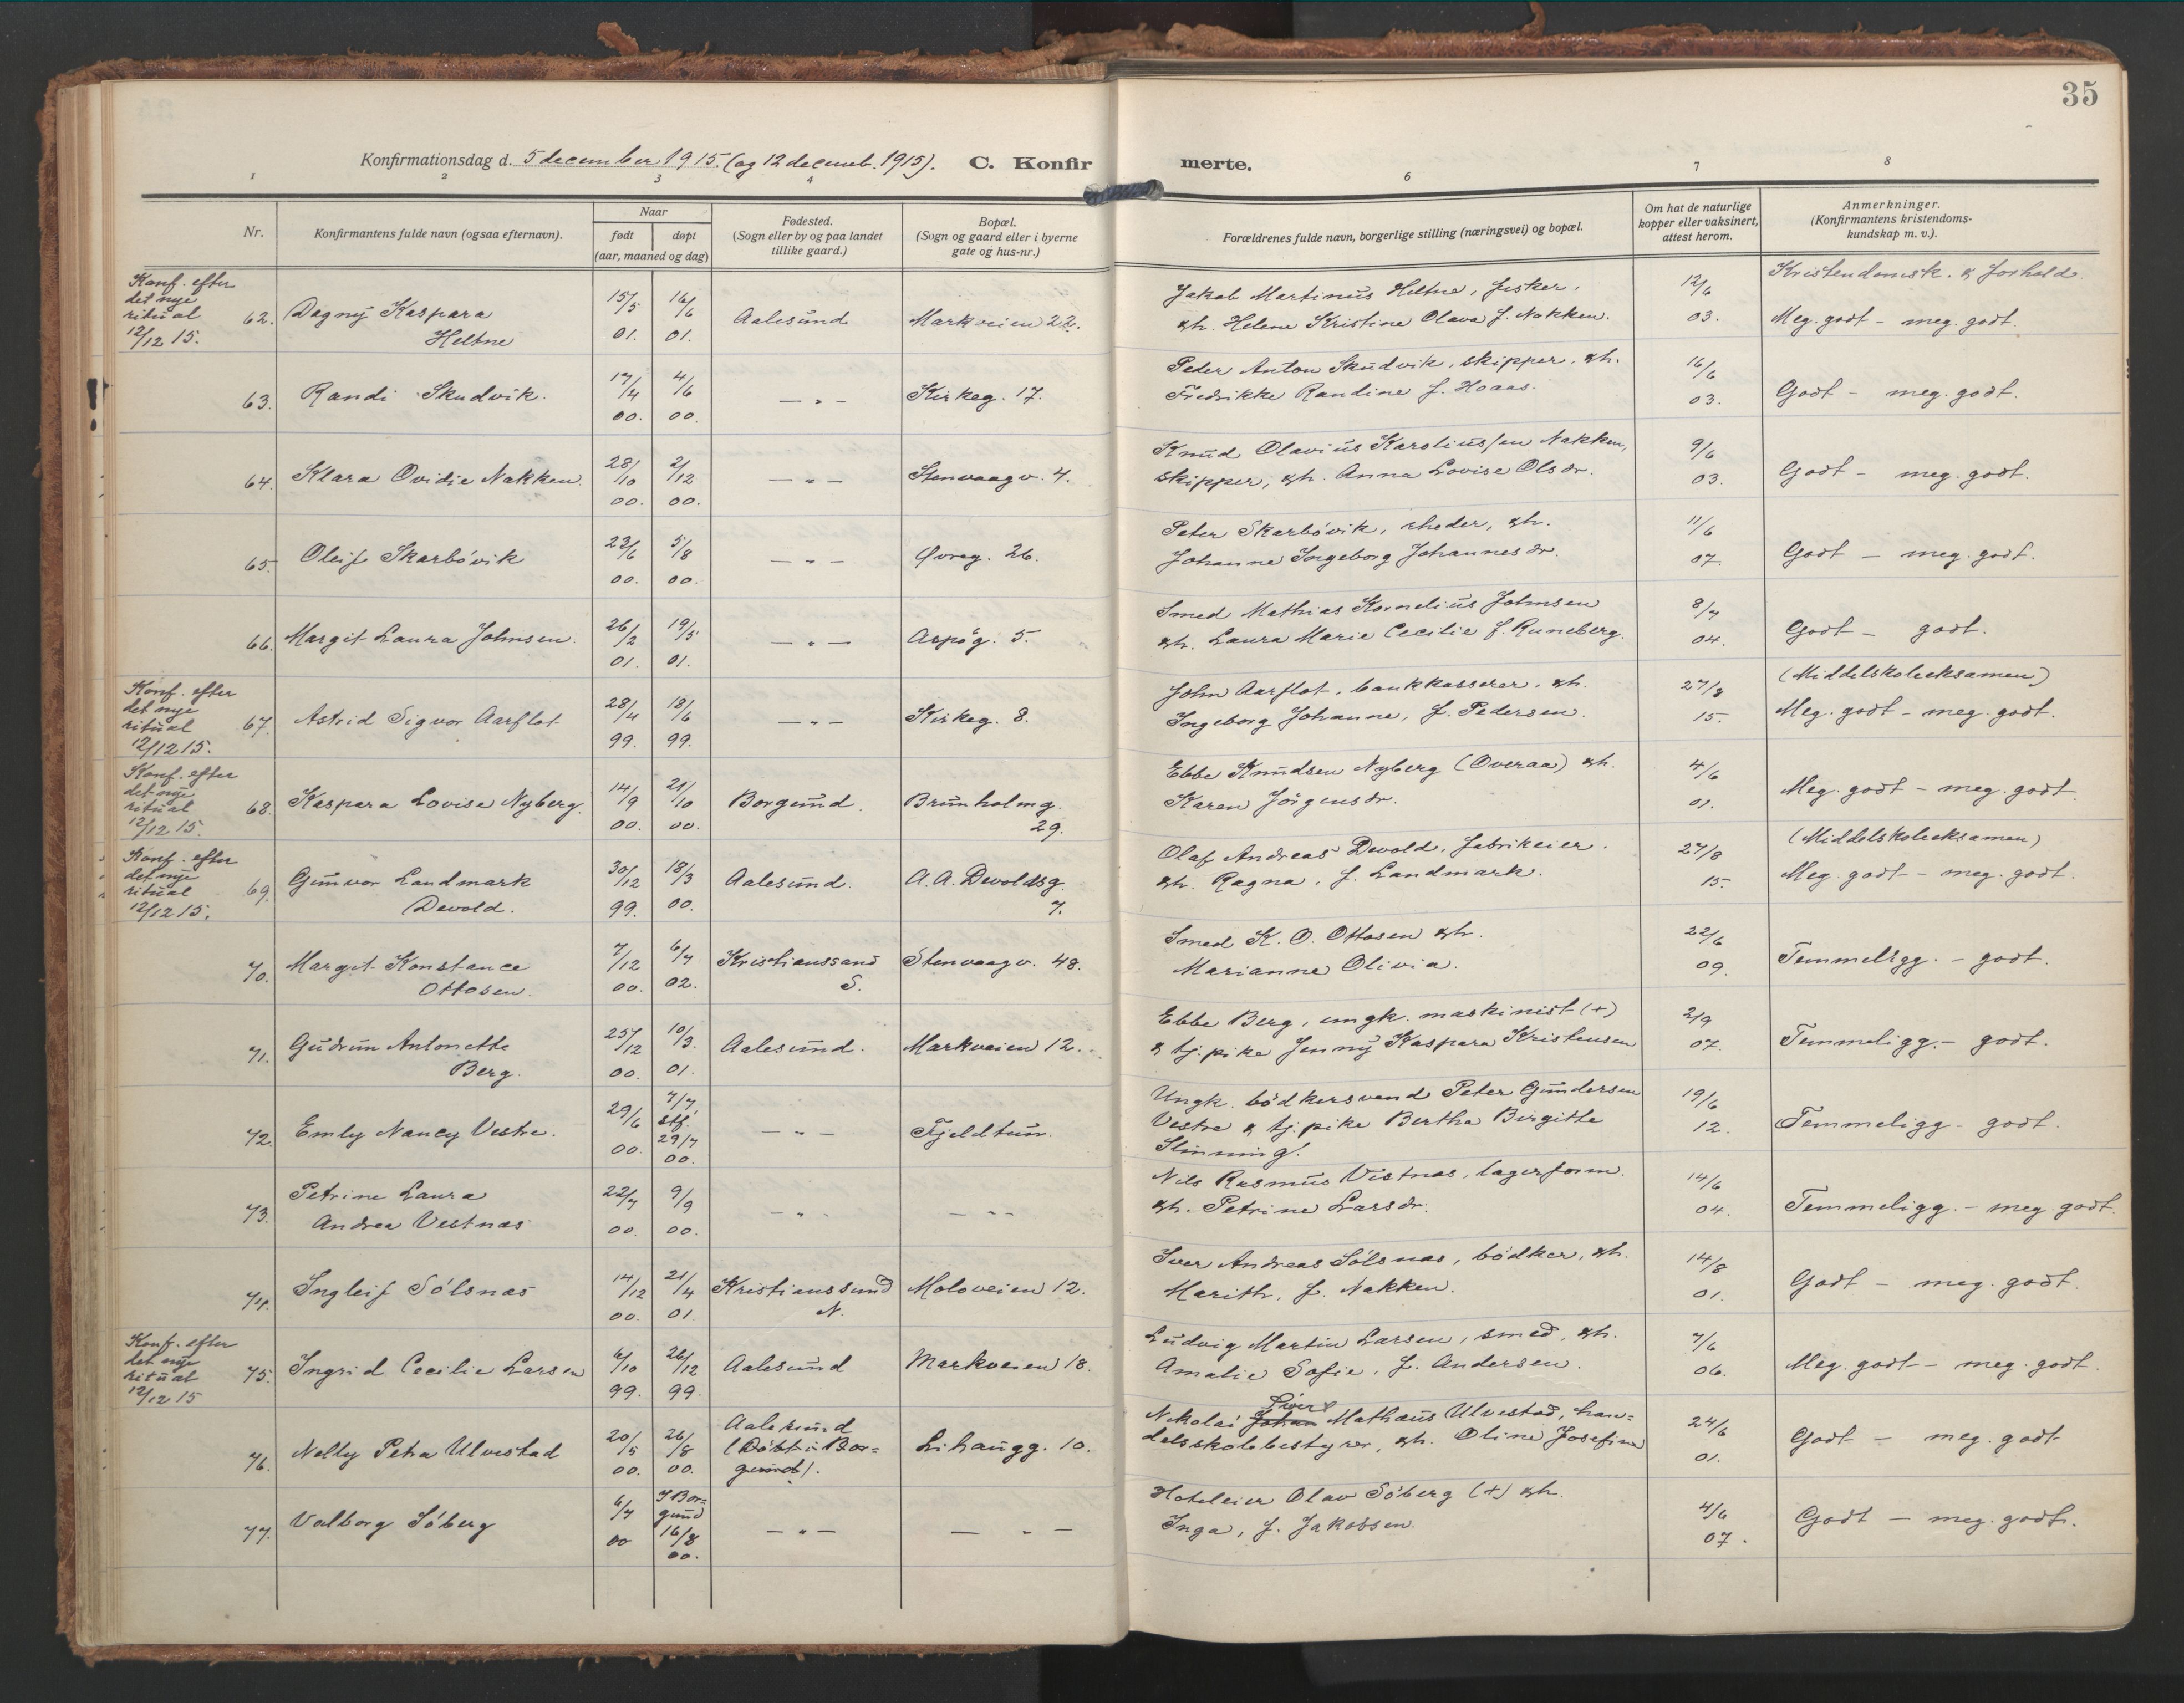 35
Konfirmationsdag d. 5 december 1915. (og 12 decemb. 1915). C. Konfirmerte.
1 2 3 4 6 7 8
Nr.
Konfirmantens fulde navn (ogsaa efternavn).
Naar
født døpt
(aar, maaned og dag)
Fødested.
(Sogn eller by og paa landet
tillike gaard.)
Bopæl.
(Sogn og gaard eller i byerne
gate og hus-nr.)
Forældrenes fulde navn, borgerlige stilling (næringsvei) og bopæl.
Om hat de naturlige
kopper eller vaksinert,
attest herom.
Anmerkninger.
(Konfirmantens kristendoms-
kundskap m. v.).
Kristendomsk. & forhold.
Konf. efter
det nye
ritual
12/12 15.
62. Dagny Kaspara
Heltne
15/5 01. 16/6 01.
Aalesund
Markveien 22.
Jakob Martinus Heltne, fisker,
& h. Helene Kristine Olava f. Nakken.
12/6 03.
Meg. godt - meg. godt.
63. Randi Skudvik.
17/4 00. 4/6 00.
— " —
Kirkeg. 17.
Peder Anton Skudvik, skipper, & h.
Fredrikke Randine f. Hoaas.
16/6 03.
Godt - meg. godt.
64. Klara Ovidie Nakken.
28/10 00. 2/12 00.
— " —
Stenvaagv. 4.
Knud Olavius Karoliussen Nakken,
skipper, & h. Anna Lovise Olsdr.
9/6 03.
Godt - meg. godt.
65. Oleif Skarbövik
23/6 00. 5/8 00.
— " —
Øvreg. 26.
Peter Skarbövik, rheder, & h.
Johanne Ingeborg Johannesdr.
11/6 07.
Godt — meg. godt.
66. Margit Laura Johnsen.
26/2 01. 19/5 01.
— " —
Aspög. 5.
Smed Mathias Kornelius Johnsen
& h. Laura Marie Cecilie f. Runeberg.
8/7 04.
Godt — godt.
Konf. efter
det nye
ritual
12/12 15.
67. Astrid Sigvor Aarflot
28/4 99. 18/6 99.
— " —
Kirkeg. 8.
John Aarflot, bankkasserer, & h.
Ingeborg Johanne, f. Pedersen.
27/8 15.
(Middelskoleeksamen)
Meg. godt - meg. godt.
Konf. efter
det nye
ritual
12/12 15.
68. Kaspara Lovise Nyberg.
14/9 00. 21/10 00.
Borgund.
Brunholmg.
29.
Ebbe Knudsen Nyberg (Overaa) & h.
Karen Jörgensdr.
4/6 01.
Meg. godt - meg. godt.
Konf. efter
det nye
ritual
12/12 15.
69. Gunvor Landmark
Devold.
30/12 99. 18/3 00.
Aalesund.
A. A. Devoldsg.
7.
Olaf Andreas Devold, fabrikeier.
& h. Ragna, f. Landmark.
27/8 15.
(Middelskoleeksamen)
Meg. godt - meg. godt.
70. Margit Konstance
Ottosen.
7/12 00. 6/7 02.
Kristianssand
S.
Stenvaagv. 48.
Smed K. O. Ottosen & h.
Marianne Olivia.
22/6 09.
Temmeligg. - godt.
71. Gudrun Antonette
Berg.
25/12 00. 10/3. 01.
Aalesund.
Markveien 12.
Ebbe Berg, ungk. maskinist (+)
& tj. pike Jenny Kaspara Kristensen
2/9 07.
Temmeligg. - godt.
72. Emly Nancy Vestre.
29/6 00. 7/7, stf. 29/7 00.
— " —
Fjeldtun.
Ungk. bödkersvend Peter Gundersen
Vestre & tj. pike Bertha Birgitte
Slinning.
19/6 12.
Temmeligg - godt.
73. Petrine Laura
Andrea Vestnas
22/7 00. 9/9 00.
— " —
— " —
Nils Rasmus Vistnas, lagerform.
& h. Petrine Larsdr.
14/6 04.
Temmeligg. - meg. godt.
74. Ingleif Sólsnas
14/12 00. 21/4 01.
Kristianssund
N.
Moloveien 12.
Iver Andreas Sólsnas, bödker, & h.
Marith, f. Nakken.
14/8 01.
Godt - meg. godt.
Konf. efter
det nye
ritual
12/12 15
75. Ingrid Cecilie Larsen
6/10 99. 26/12 99.
Aalesund
Markveien 18.
Ludvig Martin Larsen, smed, & h.
Amalie Sofie, f. Andersen.
7/6 06.
Meg. godt - meg. godt.
76. Nelly Petra Ulvestad
20/5 00. 26/8 00.
Aalesund
(Döbt i Bor=
gund).
Lihaugg. 10.
Sivert
Nikolai Johan Mathæus Ulvestad, han=
delsskolebestyrer, & h. Oline Josefine
24/6 01.
Godt - meg. godt
77. Valborg Söberg
6/7 00 I Bor=
gund
16/8 00.
— " —
— " —
Hoteleier Olav Söberg (+) & h.
Inga, f. Jakobsen.
4/6 07.
Godt — meg. godt.